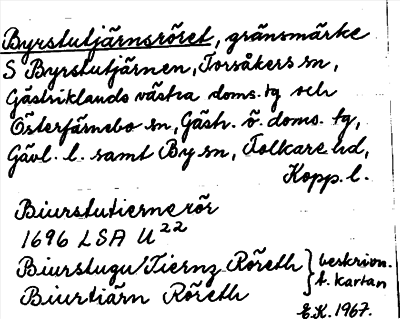 Byrstutjärnsröret, gränsmärke
S Byrstutjärnen, Torsåkers sn,
Gästriklands västra doms. tg och
Österfärnebo sn, Gästr. ö. doms. tg,
Gävl. l. samt By sn, Folkare hd,
Kopp. l.
Biurstutiernerör
1696 LSA U 22
Biurstugu Tiernz Röreth } beskrivn.
Biurtiärn Röreth } t. kartan
E.K. 1967.